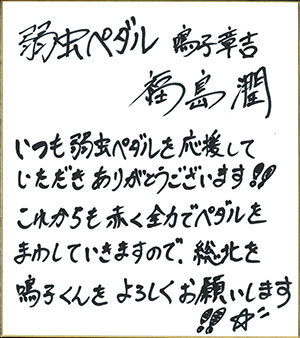 弱虫ペダル 鳴子章吉
福島潤
いつも弱虫ペダルを応援して
いただきありがとうございます!!
これからも赤く全力でペダルを
まわしていきますので、総北を
鳴子くんをよろしくお願いします
!!☆